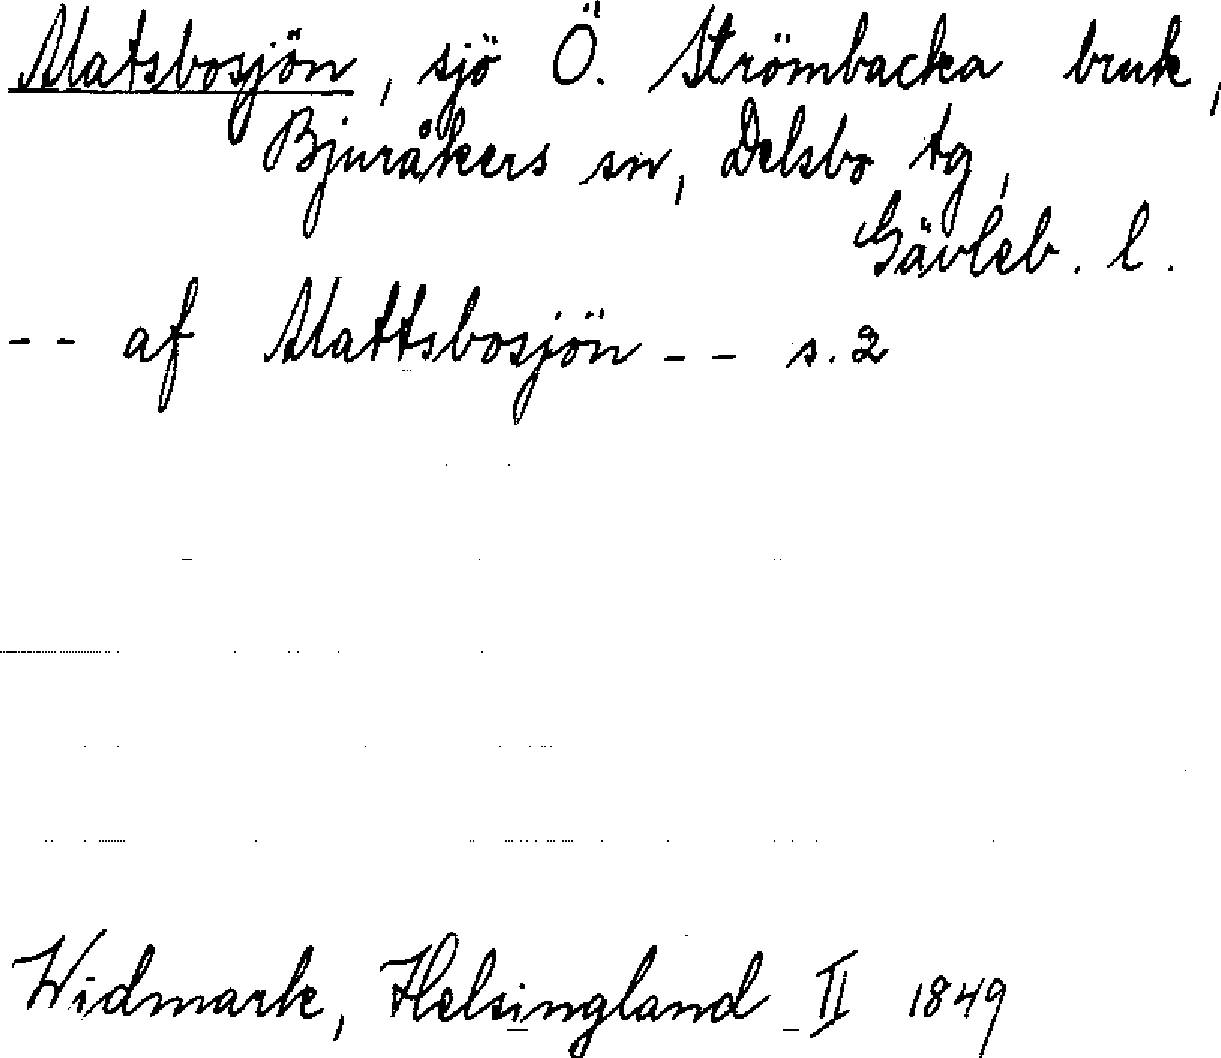 Matsbosjön, sjö Ö. Strömbacka bruk,
Bjuråkers sn, Delsbo tg,
Gävleb. l.
-- af Mattsbosjön -- s. 2
Widmark, Helsingland II 1849